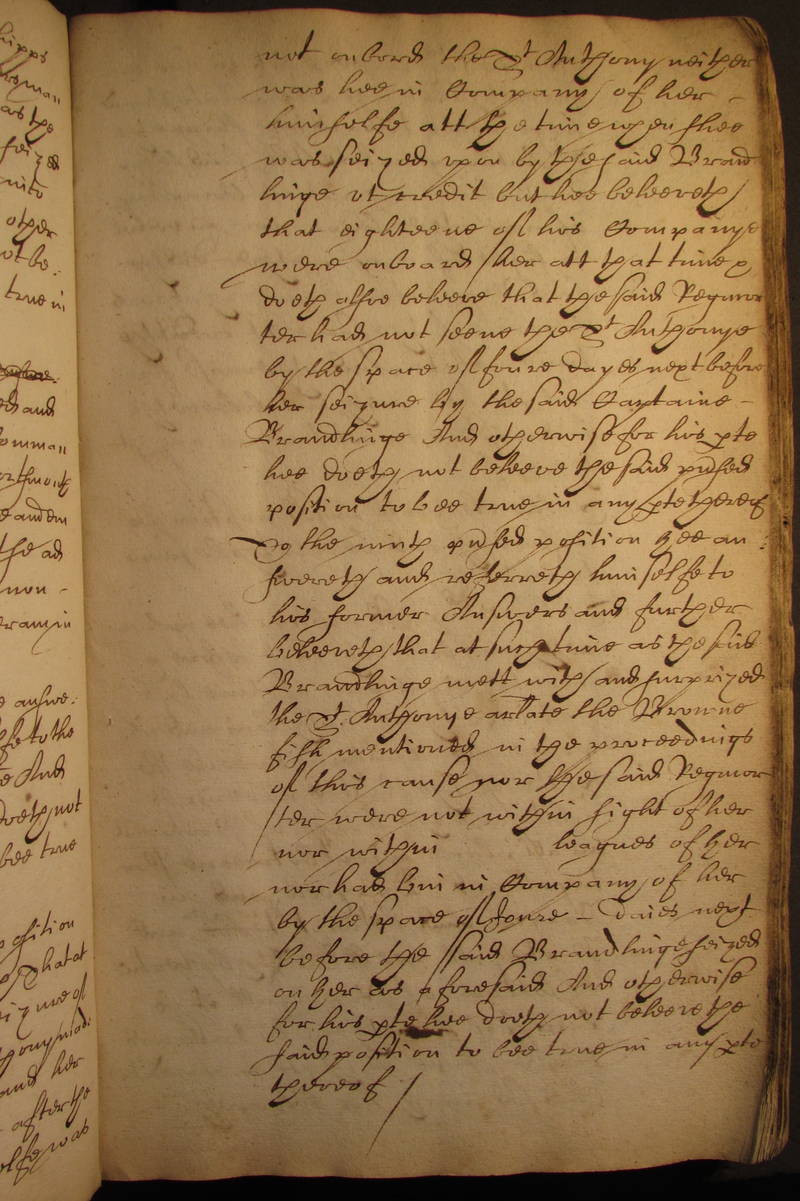 hipps
as the
seized
into
other
not be:
true in
ed and
omman
the ad
non -
e answe:
lfe to the
e And
doeth not
bee true
position
That at
seizure of
and her
after the
elfe was
not onbord the St Anthony neither
was hee in Company of her -
himselfe att the time when shee
was seized upon by the said Brand
linge ut credit but hee beleeveth
that eighteene of his Companye
were onboard her att that time &
doeth alsoe beleeve that the said Regmor
ter had not seene the St Anthonye
by the space of foure dayes next before
her seizure by the said Captaine -
Brandlinge And otherwise for his pte
hee doeth not beleeve the said pdsed
position to bee true in any pte thereof
To the ninth pdsed position hee an:
swereth and referreth himselfe to
his former Answers and further
beleeveth that at such time as the said
Brandlinge mett with and surprized
the St. Anthonye arlate the Browne
fish mentioned in the proceedings
of this cause nor the said Regmor
ter were not within sight of her
nor within leagues of her
nor had bin in Company of her
by the space of foure - daies next
before the said Brandlinge seized
on her as aforesaid And otherwise
for his pte hee doeth not beleeve the
said position to bee true in any pte
thereof /